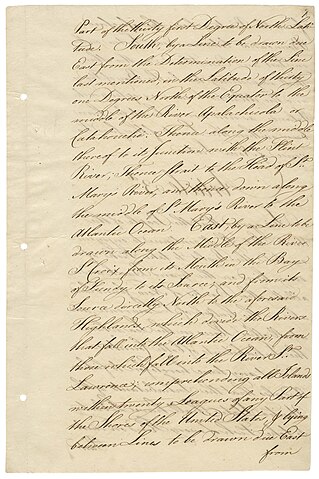 Part of the thirty first Degree of North Lati-
tude. South, by a Line to be drawn due
East from the Determination of the Line
last mentioned in the Latitude of thirty
one Degrees North of the Equator to the
middle of the River Apalachicola or
Catahouche; Thence along the middle
thereof to its Junction with the Flint
River; Thence strait to the Head of St.
Mary's River, and thence down along
the middle of St. Mary's River to the
Atlantic Ocean. East, by a Line to be
drawn along the Middle of the River
St. Croix, from its Mouth in the Bay
of Fundy to its Source; and from its
Source directly North to the aforesaid
Highlands, which divide the Rivers
that fall into the Atlantic Ocean, from
those which fall into the River St.
Lawrence; comprehending all Islands
within twenty Leagues of any Part of
the Shores of the United States, & lying
between Lines to be drawn due East
from